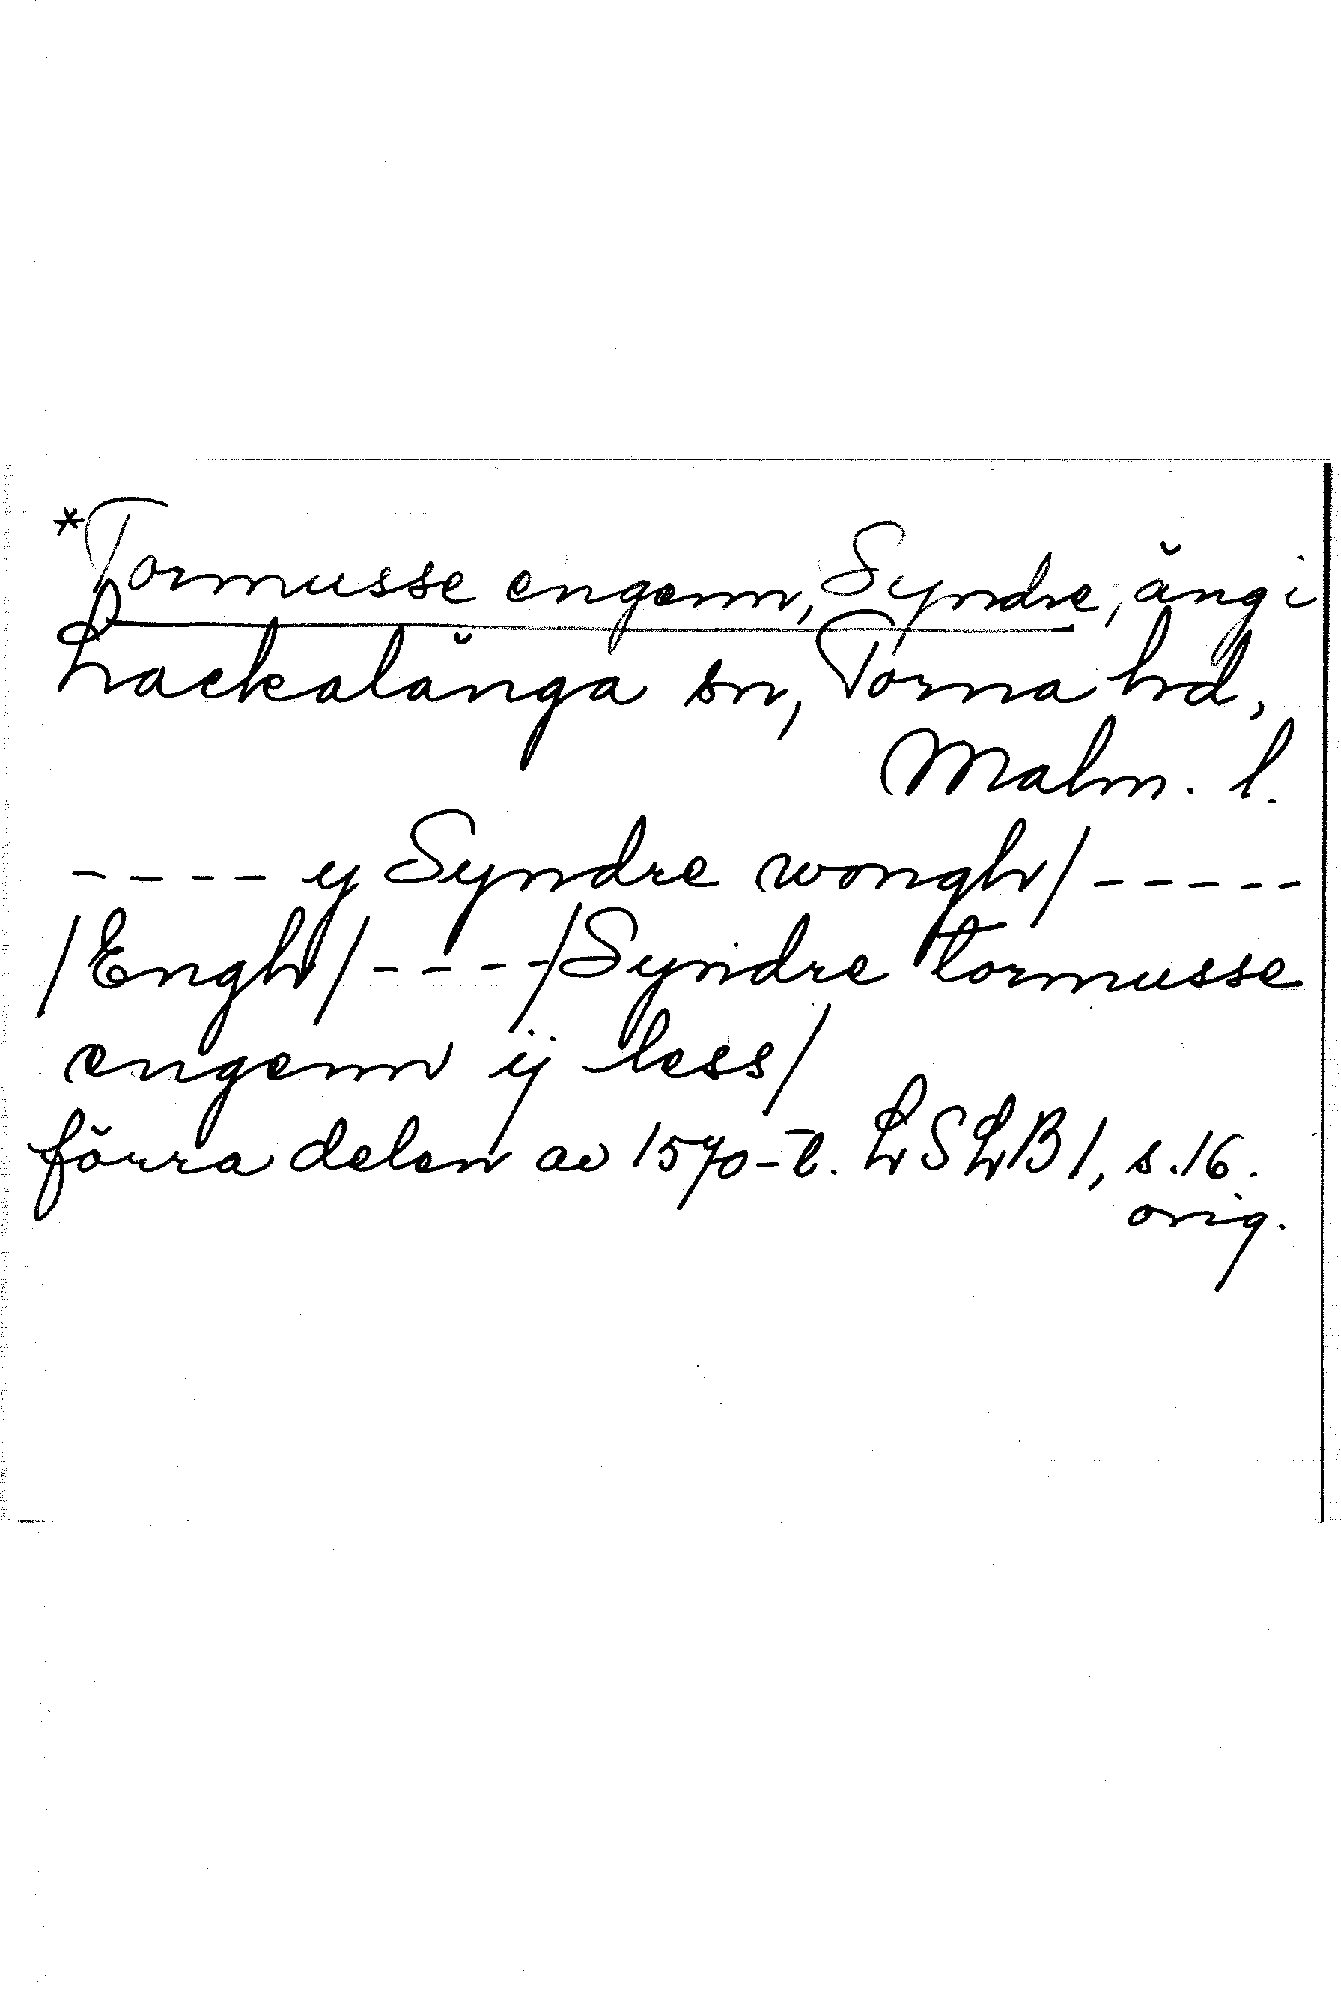 *Tormusse engenn, Syndre, äng i
Lackalänga sn, Torna hd,
Malm. l.
---- y Syndre wongh/ -----
/Engh/ ----/Syndre tormusse
engenn ij less/
förra delen av 1570-t. LSLB 1, s. 16.
orig.